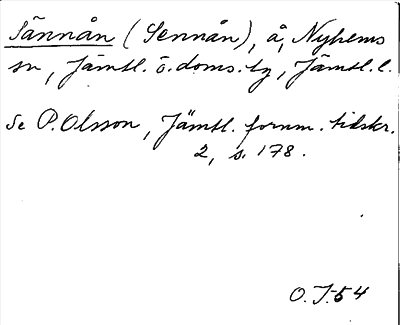 Sännån (Sennån), å, Nyhems
sn, Jämtl. ö. doms. tg, Jämtl. l.
Se P. Olsson, Jämtl. fornm. tidskr.
2, s. 178.
O. J. 54